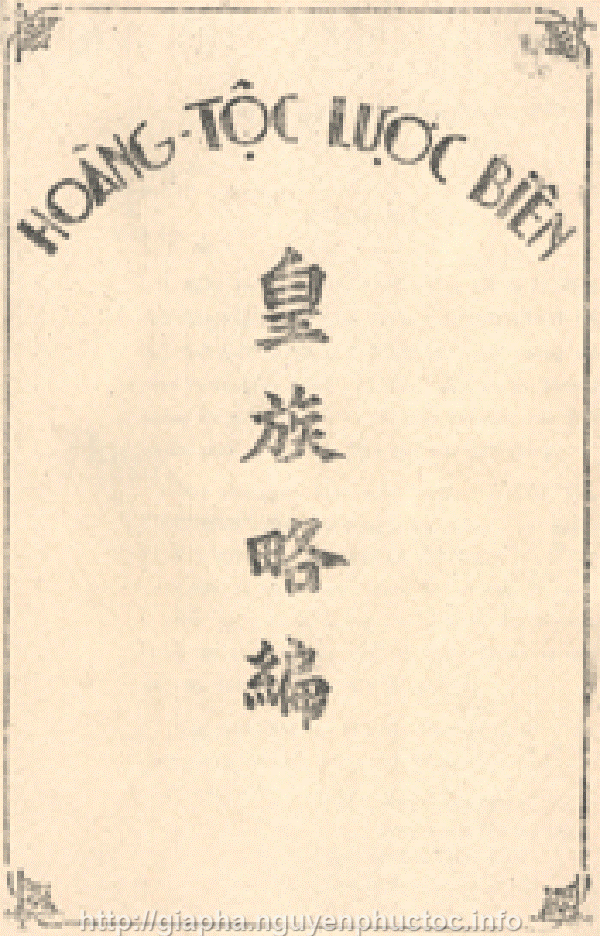 HOÀNG-TỘC LƯỢC BIÊN
皇
族
略
編
http://giapha.nguyenphuctoc.info